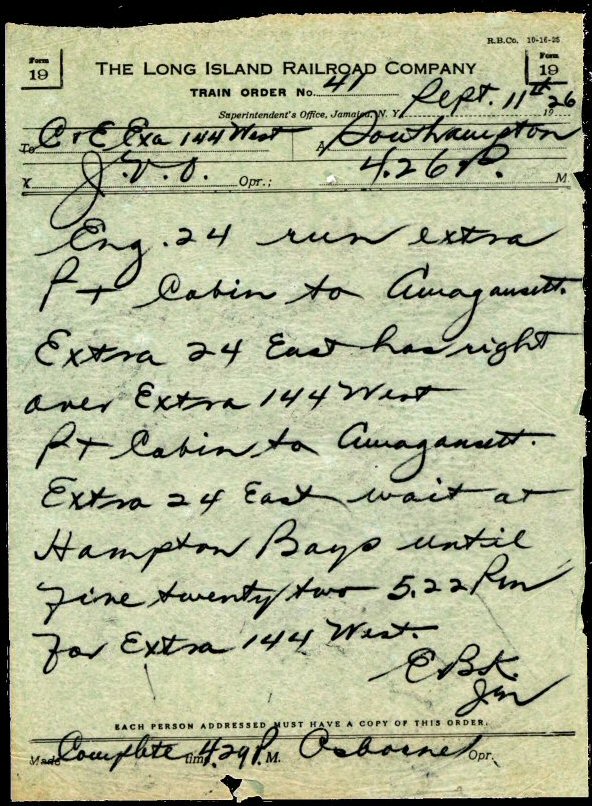 R.B.Co. 10-16-25
Form 19
Form 19
THE LONG ISLAND RAILROAD COMPANY
TRAIN ORDER No. 41
Superintendent's Office, Jamaica, N. Y. Sept. 11th 1926
To C & E Exa 144 West A Southampton
X J.V.O. Opr.; 4.26 P. M
Eng. 24 run extra
Pt Cabin to Amagansett.
Extra 24 East has right
over Extra 144 West
Pt Cabin to Amagansett.
Extra 24 East wait at
Hampton Bays until
five twenty two 5.22 Pm
for Extra 144 West.
E.B.K.
EACH PERSON ADDRESSED MUST HAVE A COPY OF THIS ORDER.
Made Complete time 4.29 P. M. Osborne Opr.